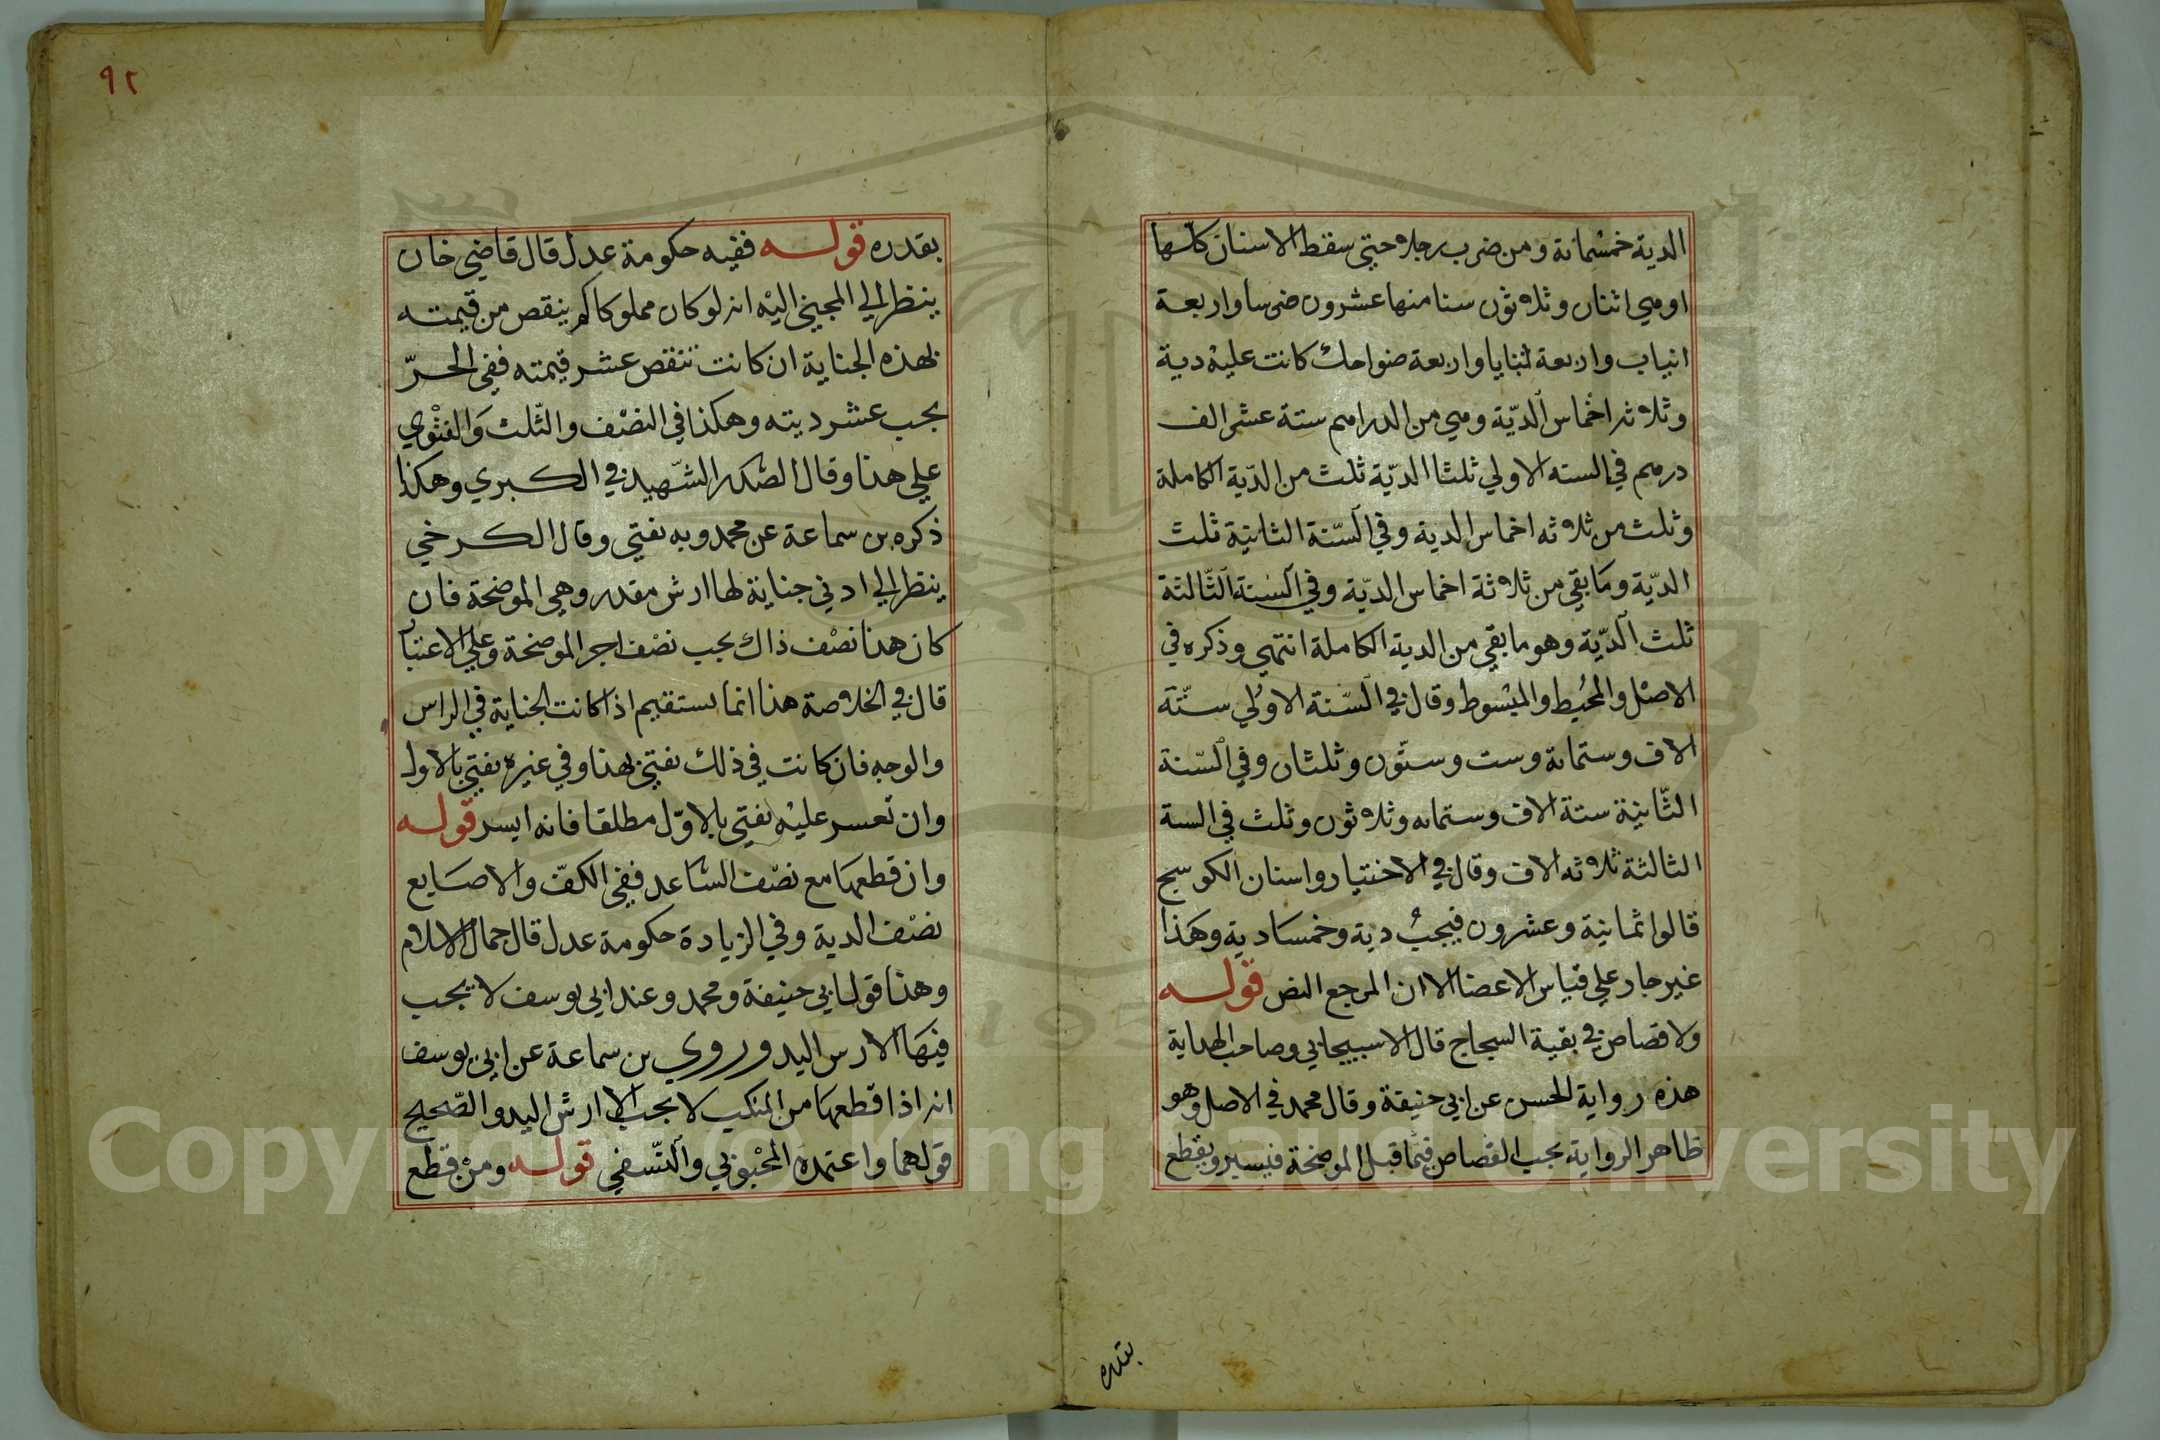 الدية خمسمائة ومن ضرب رجلا حتى سقط الاسنان كلها
اومي اثنان وثلاثون سنا منها عشرون ضرسا واربعة
انياب واربعة ثنايا واربعة ضواحك كانت عليه دية
وثلاثه اخماس الديّة ومي من الدراهم ستة عشر الف
درهم في السنه الاولي ثلثا الديّة ثلث من الديّة الكاملة
وثلث من ثلاثه اخماس الدية وفي السّنة الثانية ثلث
الديّة وما بقي من ثلاثة اخماس الديّة وفي السنة الثّالثة
ثلث الديّة وهو ما بقي من الدية الكاملة انتهي وذكره في
الاصل والمحيط والمبسوط وقال في السّنة الاولي ستّة
الاف وستمائة وست وستون وثلثان وفي السّنة
الثّانية ستة الاف وستمائه وثلاثون وثلث في السنة
الثالثة ثلاثه الاف وقال في الاختيار واسنان الكوسج
قالوا ثمانية وعشرون فيجب دية وخمسا دية وهذا
غير جار علي قياس الاعضا الا ان المرجع النص قوله
ولا قصاص في بقية الشجاج قال الاسبيجابي وصاحب الهداية
هذه رواية الحسن عن ابي حنيفة وقال محمد في الاصل وهو
ظاهر الرواية يجب القصاص فيما قبل الموضحة فيسبر ويقطع
بقدره
٩٢
بقدره قوله ففيه حكومة عدل قال قاضي خان
ينظر الي المجني اليه انه لو كان مملوكا كم ينقص من قيمته
بهذه الجناية ان كانت تنقص عشر قيمته ففي الحرّ
يجب عشر ديته وهكذا في النصف والثّلث والفتوي
علي هذا وقال الصدر الشّهيد في الكبري وهكذا
ذكره بن سماعة عن محمد وبه نفتي وقال الكرخي
ينظر الي ادني جناية لها ارش مقدر وهي الموضحة فان
كان هذا نصف ذاك يجب نصف اجر الموضحة وعلي الاعتبار
قال في الخلاصة هذا انما يستقيم اذا كانت الجناية في الراس
والوجه فان كانت في ذلك نفتي بهذا وفي غيره نفتي بالاول
وان تعسر عليه نفتي بالاوّل مطلقا فانه ايسر قوله
وان قطعها مع نصف الساعد ففي الكفّ والاصابع
نصف الدية وفي الزيادة حكومة عدل قال جمال الاسلام
وهذا قول ابي حنيفة ومحمد وعند ابي يوسف لا يجب
فيها الا ارس اليد وروي بن سماعة عن ابي يوسف
انه اذا قطعها من المنكب لا يجب الا ارش اليد والصّحيح
قولهما واعتمده المحبوبي والنّسفي قوله ومن قطع
Copyright © King Saud University